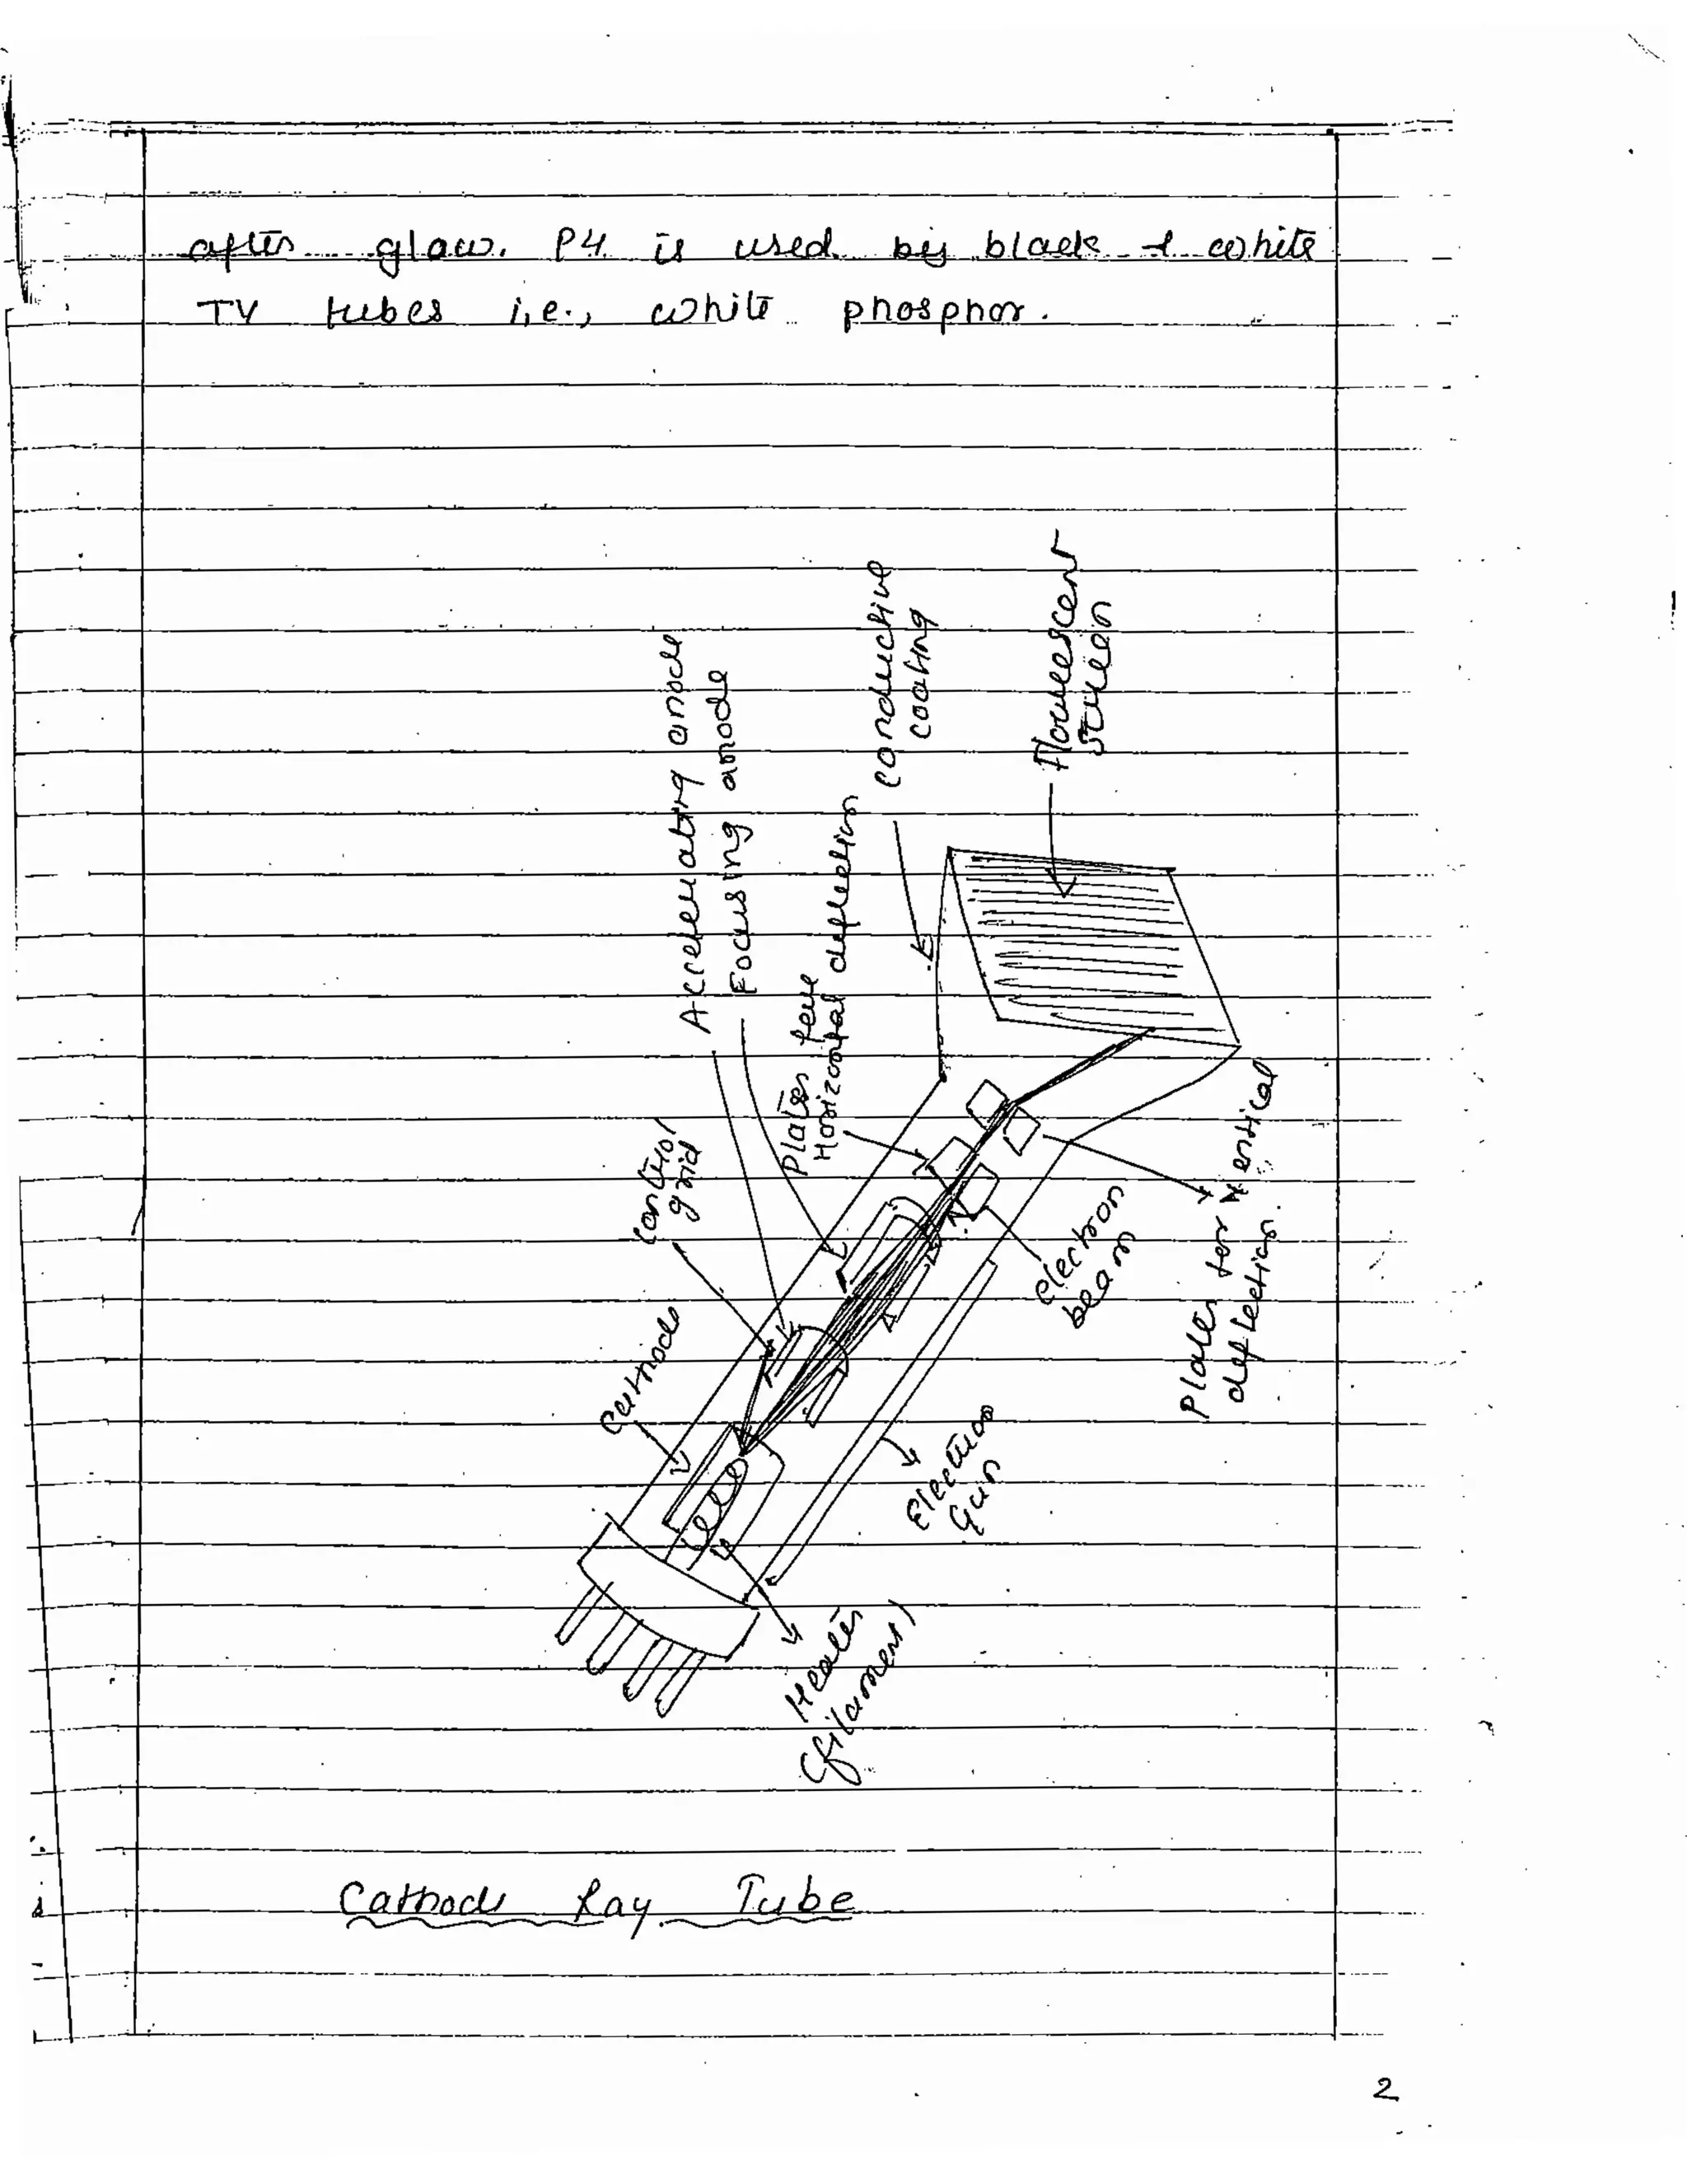 after glow. P4 is used by black & white
TV tubes i.e., white phosphor.
Accelerating anode
Focusing anode
conductive
coating
Flourescent
screen
Plates
Horizontal deflection
control
grid
cathode
electron
beam
Plates for vertical
deflection.
Electron
Gun
Heater
(filament)
Cathode Ray Tube
2